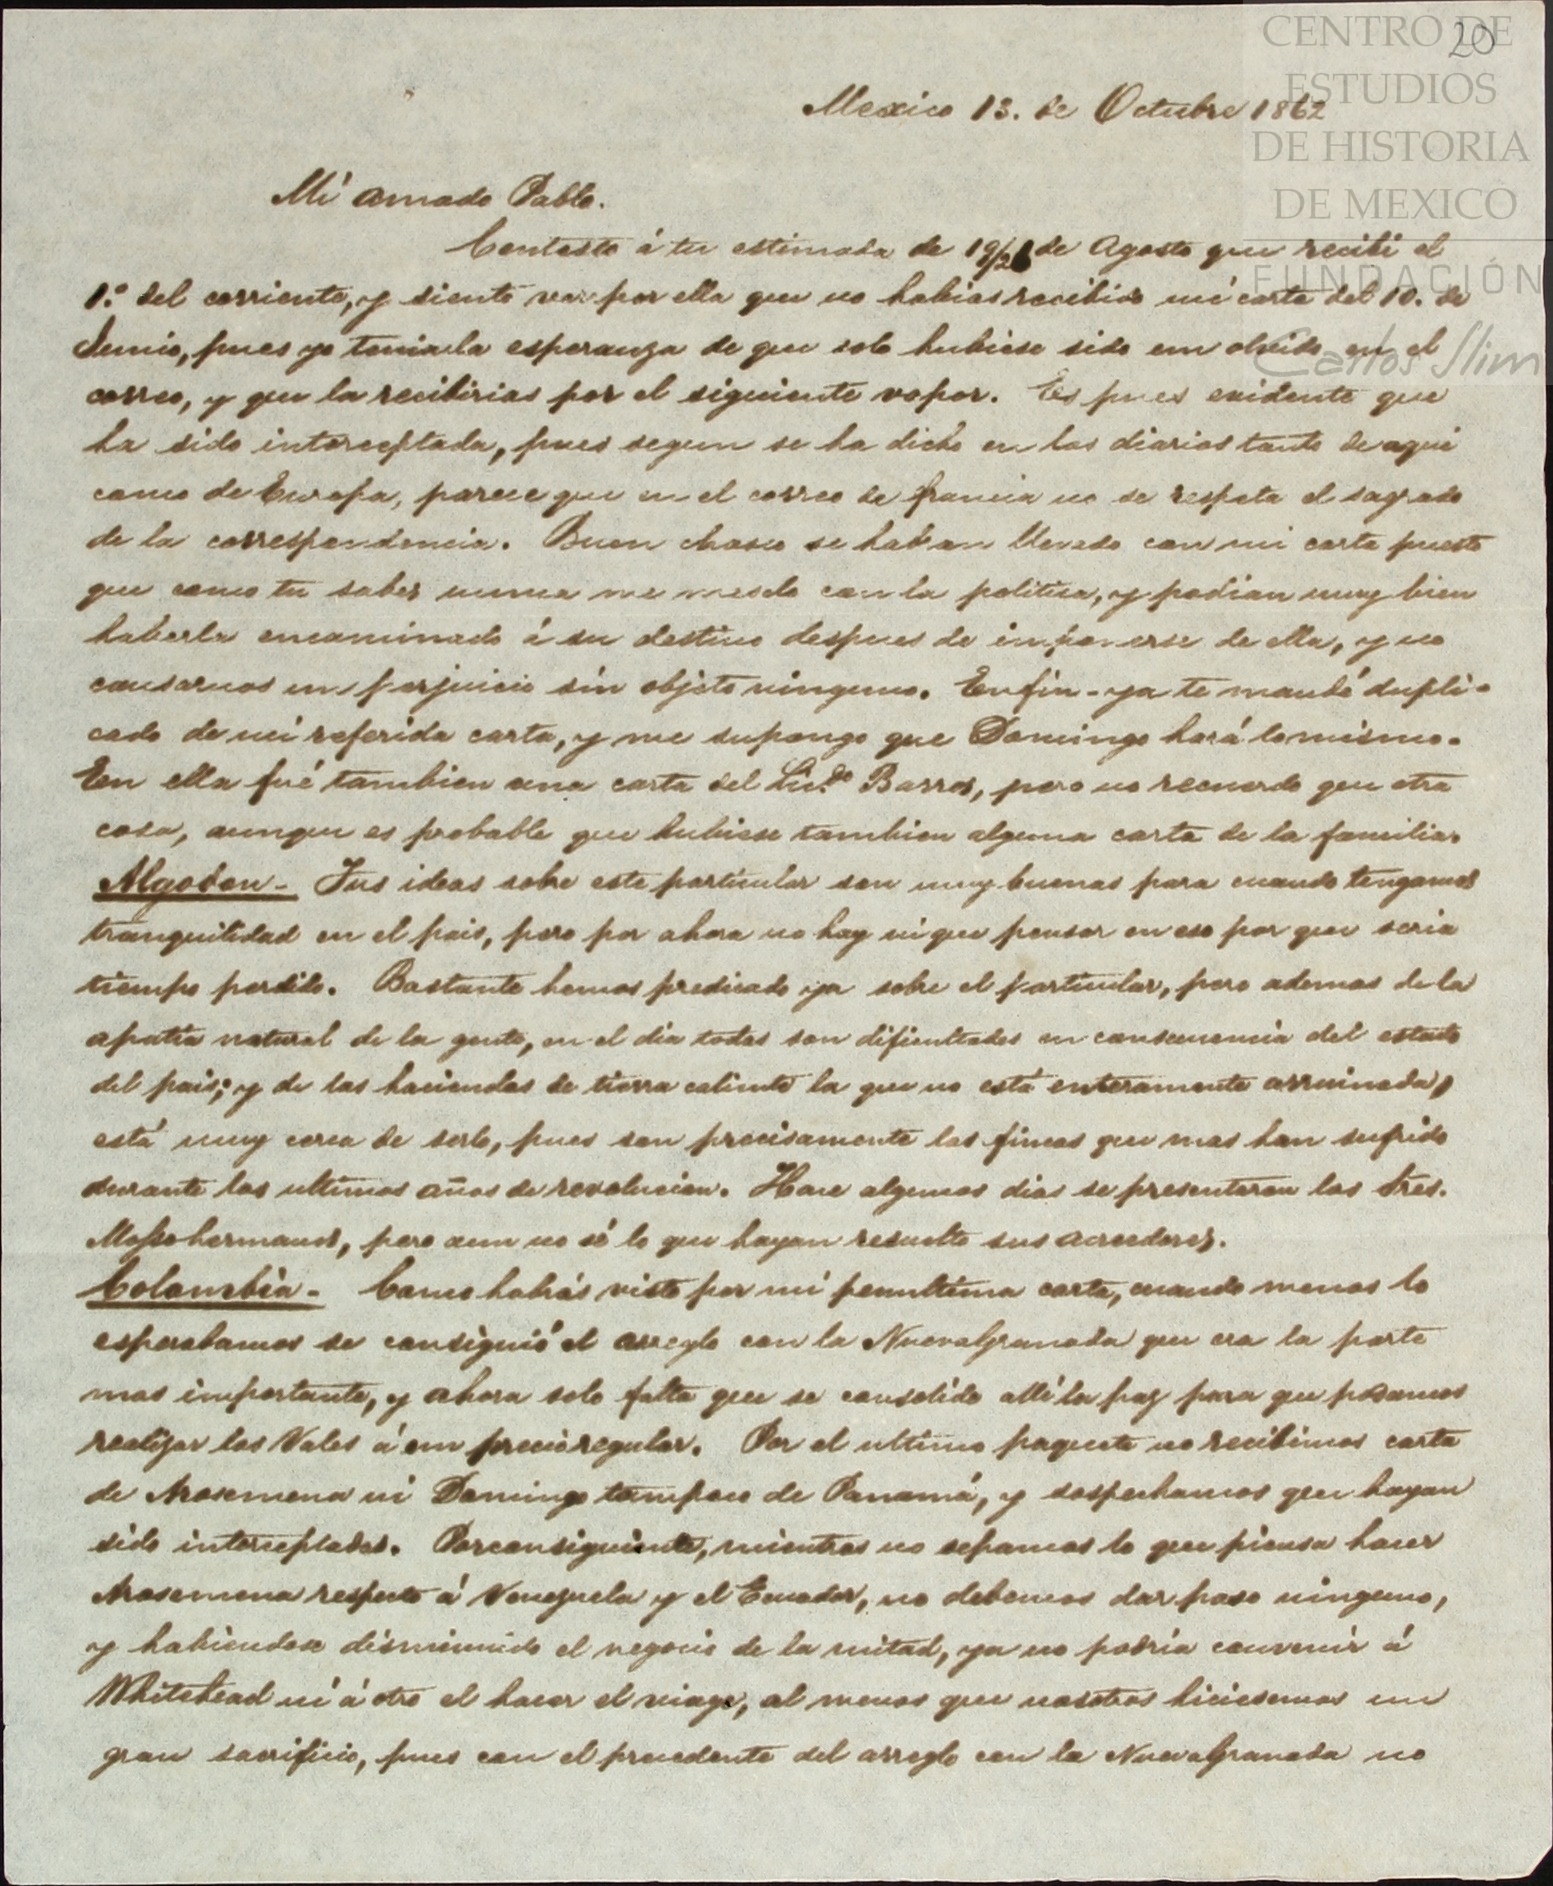 20
CENTRO DE
ESTUDIOS
DE HISTORIA
DE MEXICO
FUNDACIÓN
Carlos Slim
Mexico 13. de Octubre 1862
Mi amado Pablo.
Contesto á tu estimada de 19/21 de Agosto que recibi el
1.º del corriente, y siento ver por ella que no habias recibido mi carta del 10. de
Junio, pues yo tenia la esperanza de que solo hubiese sido un olvido en el
correo, y que la recibirias por el siguiente vapor. Es pues evidente que
ha sido interceptada, pues segun se ha dicho en los diarios tanto de aqui
como de Europa, parece que en el correo de francia no se respeta el sagrado
de la correspondencia. Buen chasco se habran llevado con mi carta puesto
que como tu sabes nunca me mesclo con la politica, y podian muy bien
haberla encaminado á su destino despues de imponerse de ella, y no
causarnos un perjuicio sin objeto ninguno. En fin - ya te mandé dupli-
cado de mi referida carta, y me supongo que Domingo hará lo mismo.
En ella fué tambien una carta del Lic.do Barros, pero no recuerdo que otra
cosa, aunque es probable que hubiese tambien alguna carta de la familia.
Algodon - Tus ideas sobre este particular son muy buenas para cuando tengamos
tranquilidad en el pais, pero por ahora no hay ni que pensar en eso por que seria
tiempo perdido. Bastante hemos predicado ya sobre el particular, pero ademas de la
apatia natural de la gente, en el dia todas son dificultades en consecuencia del estado
del pais; y de las haciendas de tierra caliente la que no está enteramente arruinada,
está muy cerca de serlo, pues son precisamente las fincas que mas han sufrido
durante los ultimos años de revolucion. Hace algunos dias se presentaron los Sres.
Mosso hermanos, pero aun no sé lo que hayan resuelto sus acreedores.
Colombia - Como habrás visto por mi penultima carta, cuando menos lo
esperabamos se consiguió el arreglo con la Nueva Granada que era la parte
mas importante, y ahora solo falta que se consolide alli la paz para que podamos
realizar los Vales á un precio regular. Por el ultimo paquete no recibimos carta
de Arosemena ni Domingo tampoco de Panamá, y sospechamos que hayan
sido interceptadas. Por consiguiente, mientras no sepamos lo que piensa hacer
Arosemena respecto á Venezuela y el Ecuador, no debemos dar paso ninguno,
y habiendose disminuido el negocio de la mitad, ya no podria convenir á
Whitehead ni á otro el hacer el viage, al menos que nosotros hiciesemos un
gran sacrificio, pues con el precedente del arreglo con la Nueva Granada no